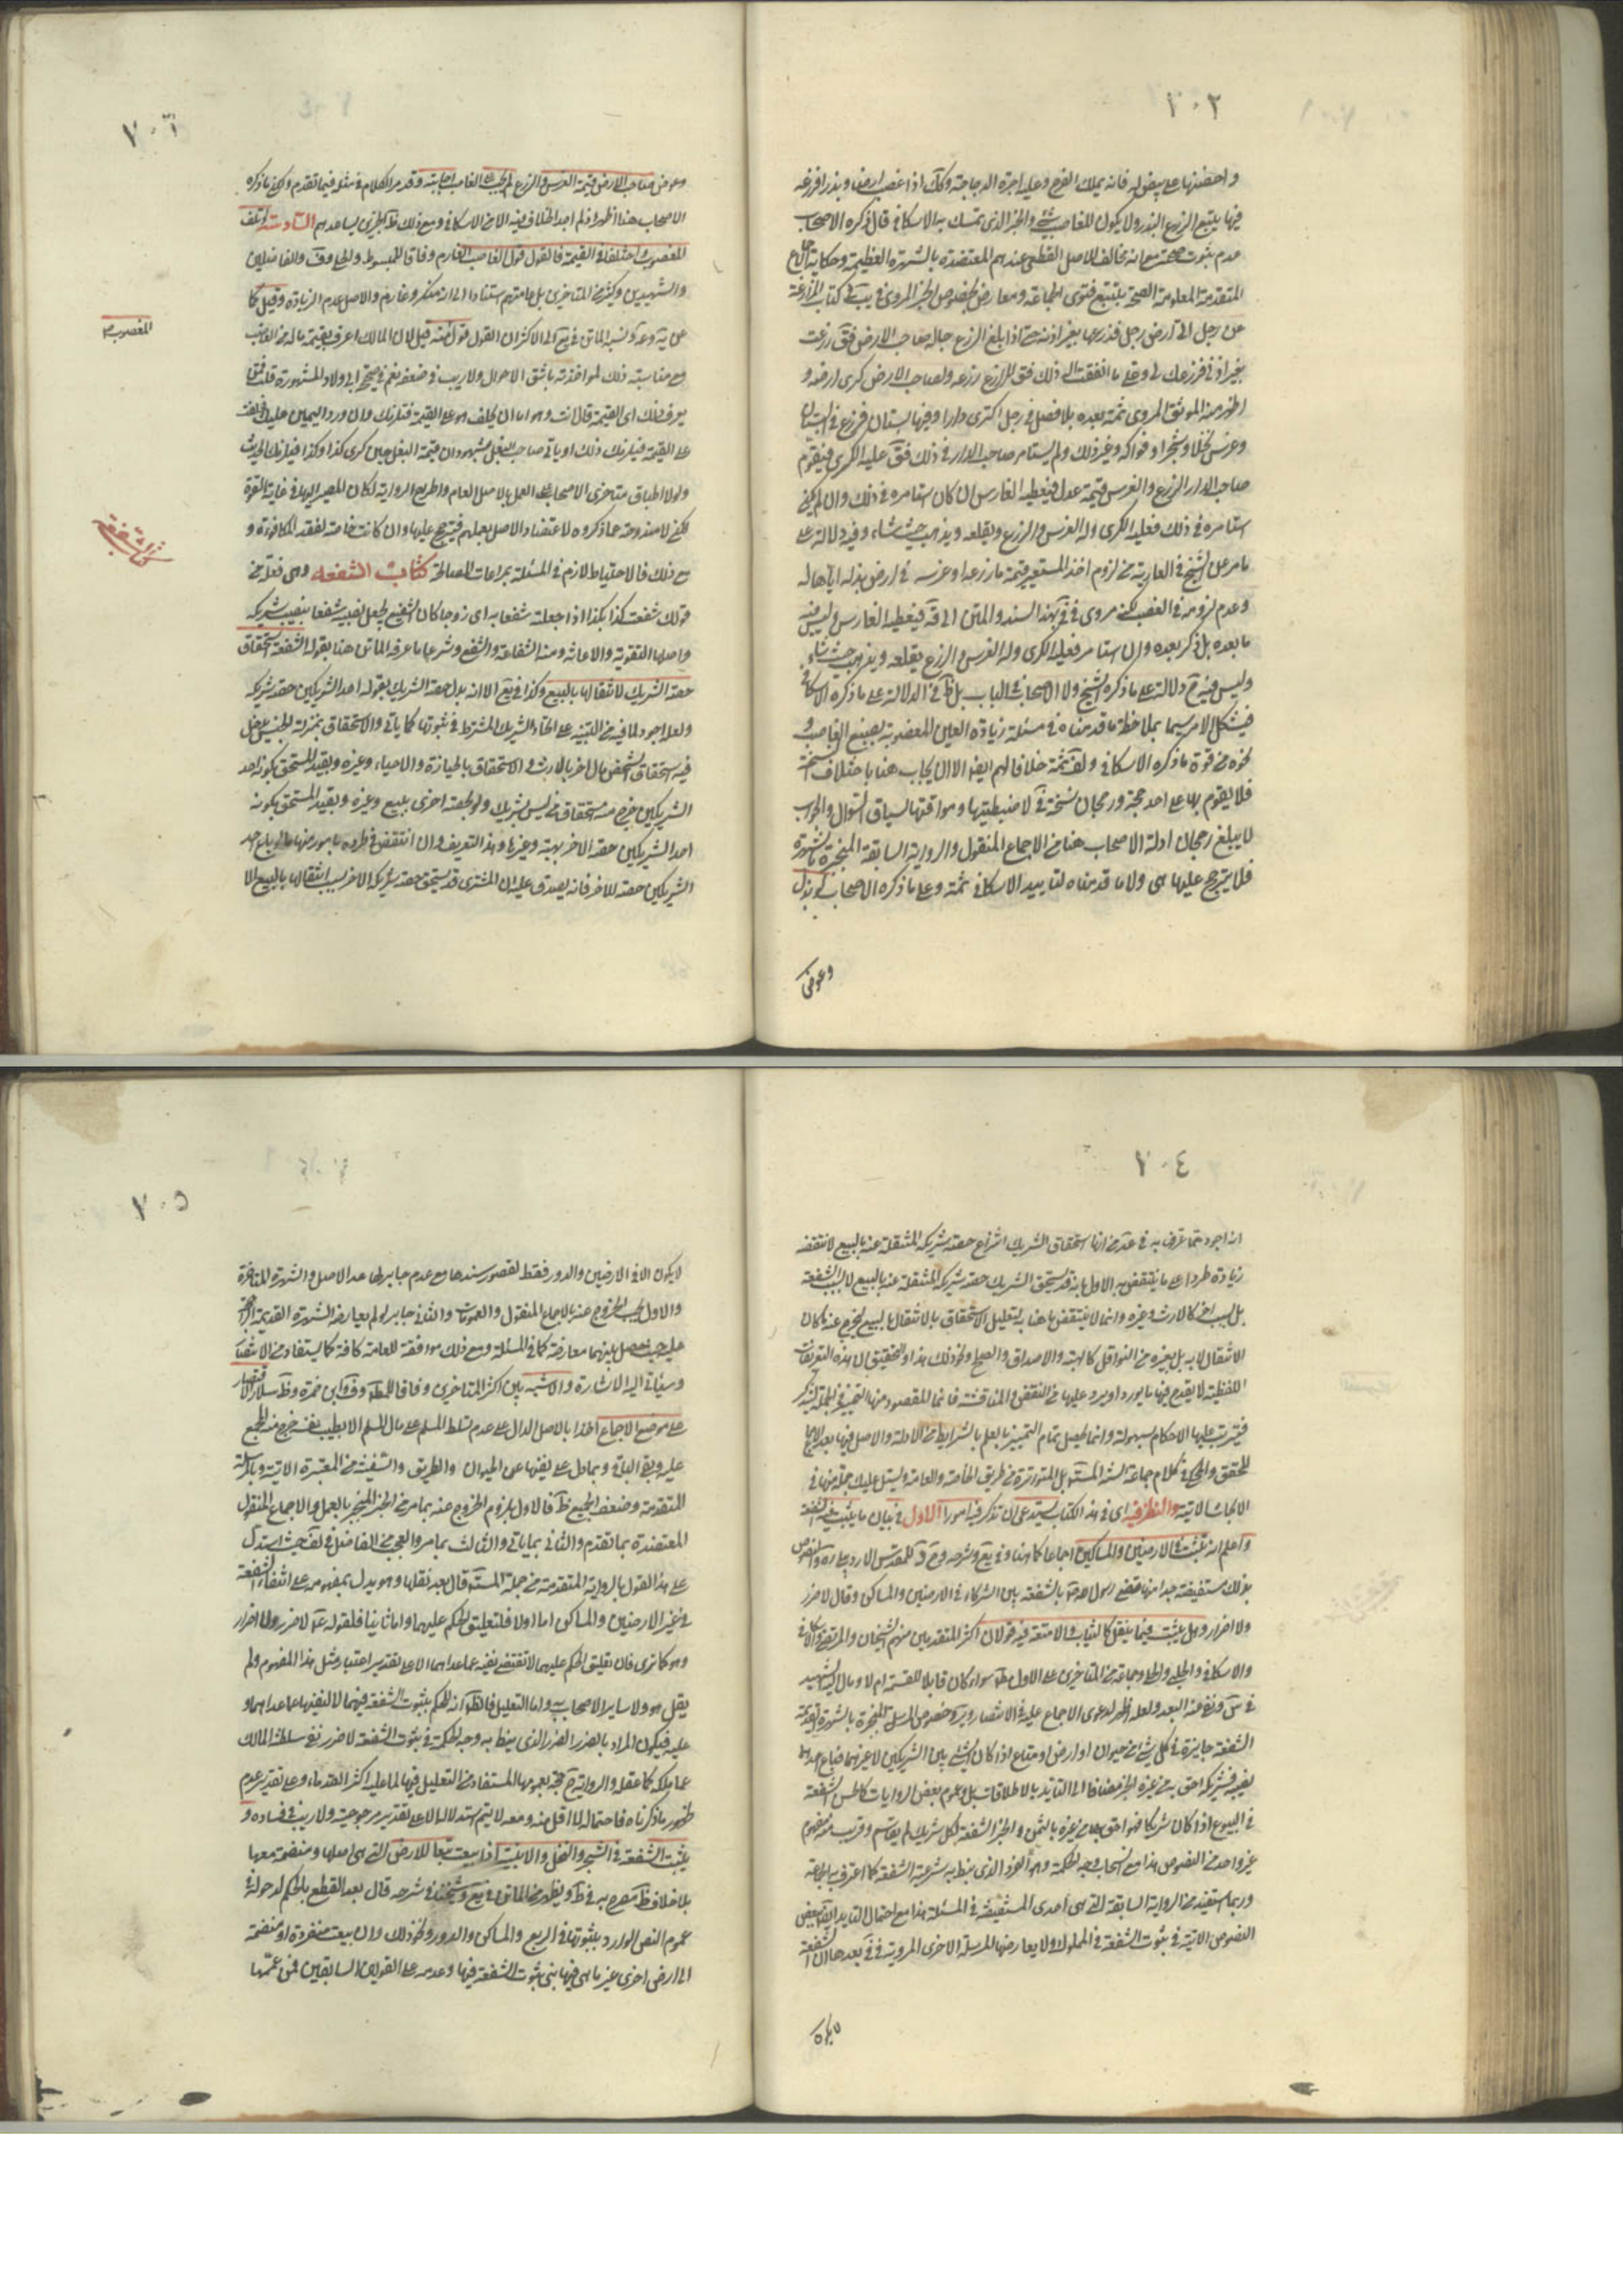 ٧٠٢
واحضنها
فانه يملك الفرخ وعليه اجرة الدجاجة وكك اذا غصب ارضا وبذرا فزرعه
فيها يتبع الزرع البذر ولا يكون للغاصب شئ والخبر الذى تمسك به الاسكافى قال ذكره الاصحاب
عدم ثبوت صحته مع انه مخالف للاصل القطعى عندهم المعتضدة بالشهرة العظيمة وحكاية
المتقدمة المعلومة الصحة بتتبع فتوى الجماعة ومعارض بخصوص الخبر المروى فى يب فى كتاب المزارعة
عن رجل اتى ارض رجل فزرعها بغير اذنه حتى اذا بلغ الزرع جاء صاحب الارض فق زرعت
بغير اذنى فزرعك لى وعلى ما انفقت اله ذلك فق للزارع زرعه ولصاحب الارض كرى ارضه و
اظهر منه الموثق المروى ثمة بعده بلا فصل فى رجل اكترى دارا وفيها بستان فزرع فى البستان
وغرس نخلا وشجرا وفواكه وغير ذلك ولم يستامر صاحب الدار فى ذلك فق عليه الكرى فيقوم
صاحب الدار الزرع والغرس قيمة عدل فيعطيه الغارس ان كان استامره فى ذلك وان لم يكن
استامره فى ذلك فعليه الكرى وله الغرس والزرع ويقلعه ويذهب حيث شاء وفيه دلالة على
ما مر عن الشيخ فى العارية من لزوم اخذ المستعير قيمة ما زرعه او غرسه فى ارض بذله اياها له
وعدم لزومه فى الغصب لكنه مروى فى فى بهذا السند والمتن الى قه فيعطيه الغارس وليس فيه
ما بعده بل ذكر بعده وان استامر فعليه الكرى وله الغرس والزرع يقلعه ويذهب حيث شاء
وليس فيه ح دلالة على ما ذكره الشيخ ولا الاصحاب فى الباب بل ظ فى الدلالة على ما ذكره الاسكافى
فيشكل الامر سيما بملاحظة ما قدمناه فى مسئلة زيادة العين المغصوبة بصنع الغاصب و
نحوه من قوة ما ذكره الاسكافى ولف ثمة خلافا لهم ايضا الا ان يجاب هنا باختلاف النسخة
فلا يقوم بها على احد حجة ورجحان نسخة فى لاضبطيتها وموافقتها لسياق السؤال والجواب
لا يبلغ رجحان ادلة الاصحاب هنا من الاجماع المنقول والرواية السابقة المنجبرة بالشهرة
فلا يترجح عليها هى ولا ما قدمناه لتاييد الاسكافى ثمة وعلى ما ذكره الاصحاب لو بذل
وعوض
٧٠٣
وعوض صاحب الارض قيمة الغرس والزرع لم يجب على الغاصب اجابته وقد مر الكلام فى مثله فيما تقدم ولكن ما ذكره
الاصحاب هنا اظهر اذ لم اجد الخلاف فيه الا من الاسكافى ومع ذلك ظ الخبرين يساعدهم السادسة لو تلف
المغصوب واختلفا فى القيمة فالقول قول الغاصب الغارم وفاقا للمبسوط والحلى وف والفاضلين
والشهيدين وكثير من المتاخرين بل عامتهم استنادا الى انه منكر وغارم والاصل عدم الزيادة وقيل كما
عن ية وعة ونسبه الماتن فى يع الى الاكثر ان القول قول المالك قيل لان المالك اعرف بقيمة ماله من الغاصب
المغصوب
مع مناسبة ذلك لمؤاخذته باشق الاحوال ولا ريب فى ضعفه نعم فى صحيح ابى ولاد المشهورة قلت فمن
يعرف ذلك اى القيمة قال انت وهو اما ان يحلف هو على القيمة فتلزمك وان رد اليمين عليك فحلفت
على القيمة فيلزمك ذلك او ياتى صاحب البغل بشهود ان قيمة البغل حين كرى كذا وكذا فيلزمك الحديث
ولولا اطباق متاخرى الاصحاب على العمل بالاصل العام واطراح الرواية لكان المصير اليها فى غاية القوة
لكن لا مندوحة عما ذكروه لاعتضاد الاصل بعملهم فيترجح عليها وان كانت خاصة لفقد المكافئة و
مع ذلك فالاحتياط لازم فى المسئلة بمراعات المصالحة كتاب الشفعة وهى فعلة من
كتاب الشفعة
قولك شفعت كذا بكذا اذا جعلته شفعا به اى زوجا كان الشفيع يجعل نصيبه شفعا بنصيب شريكه
واصلها التقوية والاعانة ومنه الشفاعة والشفع وشرعا ما عرفه الماتن هنا بقوله الشفعة استحقاق
حصة الشريك لانتقالها بالبيع وكذا فى يع الا انه بدل حصة الشريك بقوله احد الشريكين حصة شريكه
ولعله اجود لما فيه من التنبيه على اتحاد الشريك المشترط فى ثبوتها كما ياتى والاستحقاق بمنزلة الجنس يدخل
فيه استحقاق الشخص مال اخر بالارث والاستحقاق بالحيازة والاحياء وغيره وبقيد المستحق بكونه احد
الشريكين خرج منه استحقاق من ليس بشريك ولو لحصة اخرى ببيع وغيره وبقيد المستحق بكونه
احد الشريكين حصة الاخر بهبة وغيرها وهذا التعريف وان انتقض فى طرده بامور منها ما لو باع احد
الشريكين حصة للاخر فانه يصدق عليه ان المشترى قد يستحق حصة شريكه الاخر بسبب انتقالها بالبيع الا
٧٠٤
انه اجود مما عرف به فى عد من انها استحقاق الشريك انتزاع حصة شريكه المنتقلة عنه بالبيع لانتقضه
زيادة طردا على ما ينتقض به الاول بانه قد يستحق الشريك حصة شريكه المنتقلة عنه بالبيع لا بسبب الشفعة
بل بسبب اخر كالارث وغيره وانما لا ينتقض ما هنا به لتعليل الاستحقاق بالانتقال بالبيع فيخرج عنه ما كان
الانتقال لا به بل بغيره من النواقل كالهبة والاصداق والصلح ونحو ذلك هذا والتحقيق ان هذه التعريفات
اللفظية لا يقدح فيها ما يورد او يرد عليها من النقض والمناقشة فانما المقصود منها التميز فى الجملة
فيترتب عليها الاحكام بسهولة وانما يحصل تمام التميز بما يعلم بالشرايط من الادلة والاصل فيها بعد الاجماع
المحقق والمحكى فى كلام جماعة السنة المستفيضة بل المتواترة من طريق الخاصة والعامة وستتلى عليك جملة منها فى
الابحاث الاتية والنظر فيه اى فى هذا الكتاب يستدعى ان نذكر فيه امورا الاول فى بيان ما يثبت فيه الشفعة
واعلم انه تثبت فى الارضين والمساكين اجماعا كما هنا وفى يع وشرحه وح قد للمقدس الاردبيلى ره والنصوص
بذلك مستفيضة جدا منها قضى رسول الله ص بالشفعة بين الشركاء فى الارضين والمساكن وقال لا ضرر
ولا اضرار وهل يثبت فيما ينقل كالثياب والامتعة فيه قولان اكثر المتقدمين منهم الشيخان والمرتضى
والاسكافى والحلبى والحلى وجماعة من المتاخرين على الاول مط سواء كان قابلا للقسمة ام لا ومال اليه الشهيد
فى س ونفى عنه البعد ولعله اظهر لدعوى الاجماع عليه فى الانتصار وير وخصوص المرسل المنجبرة بالشهرة القديمة
الشفعة جايزة فى كل شئ من حيوان او ارض او متاع اذا كان الشئ بين الشريكين لا غيرهما فباع احدهما
نصيبه فشريكه احق به من غيره الخبر مضافا الى التاييد بالاطلاقات بل وعموم بعض الروايات كالحسن الشفعة
فى البيوع اذا كان شريكا فهو احق بها من غيره بالثمن والخبر الشفعة لكل شريك لم يقاسم وقريب منه مفهوم
غير واحد من النصوص هذا مع انسحاب وجه الحكمة وهو الضرر الذى نيط به شرعية الشفعة كما اعترف به الجماعة
وربما استفيد من الرواية السابقة التى هى احدى المستفيضة فى المسئلة هذا مع احتمال التاييد ايضا ببعض
النصوص الاتية فى ثبوت الشفعة فى المملوك ولا يعارضها المرسلة الاخرى المروية فى فى بعدها ان الشفعة
لا يكون
٧٠٥
لا يكون الا فى الارضين والدور فقط لقصور سندها مع عدم جابر لها عدا الاصل والشهرة المتاخرة
والاول يجب الخروج عنه بالاجماع المنقول والعمومات والثانى جابر لو لم يعارضه الشهرة القديمة
عليه حيث حصل بينهما معارضة كما فى المسئلة ومع ذلك موافقة للعامة كافة كما يستفاد من الانتصار
وسياتى اليه الاشارة والاشبه بين اكثر المتاخرين وفاقا للمبسوط وف وابن حمزة وظ سلار الاقتصار
على موضع الاجماع اخذا بالاصل الدال على عدم تسلط المسلم على مال المسلم الا بطيب نفسه خرج منه المجمع
عليه وبقى الباقى وبما دل على نفيها عن الحيوان والطريق والسفينة من المعتبرة الاتية وبالمرسلة
المتقدمة وضعف الجميع ظ فالاول بلزوم الخروج عنه بما مر من الخبر المنجبر بالعمل والاجماع المنقول
المعتضدة بما تقدم والثانى بما ياتى والثالث بما مر والعجب من الفاضل فى لف حيث استدل
على هذا القول بالرواية المتقدمة من جملة المستفيضة قال بعد نقلها وهو يدل بمفهومه على انتفاء الشفعة
فى غير الارضين والمساكن اما اولا فلتعليق الحكم عليهما واما ثانيا فلقوله ع لا ضرر ولا اضرار
وهو كما ترى فان تعليق الحكم عليهما لا تقتضى نفيه عما عداهما الا على تقدير اعتبار مثل هذا المفهوم ولم
يقل هو ولا ساير الاصحاب به واما التعليل فالظ انه للحكم بثبوت الشفعة فيهما لا لنفيها عما عداهما و
عليه فيكون المراد بالضرر الضرر الذى نيط به وجه الحكمة فى ثبوت الشفعة لا ضرر نفى سلطنة المالك
عما يملكه كما عقله والرواية ح حجة بعمومها المستفاد من التعليل فيها لما عليه اكثر القدماء وعلى تقدير عدم
ظهور ما ذكرناه فاحتماله لا اقل منه ومعه لا يتم استدلاله الا على تقدير مرجوحيته ولا ريب فى فساده و
يثبت الشفعة فى الشجر والنخل والابنية اذا بيعت تبعا للارض التى هى اصلها ومنضمة معها
بلا خلاف ظ مصرح به فى ظ ويظهر من الماتن فى يع وشيخنا فى شرحه قال بعد القطع بالحكم لدخوله فى
عموم النص الوارد بثبوتها فى الربع والمساكن والدور ونحو ذلك وان بيعت منفردة او منضمة
الى ارض اخرى غير ما هى فيها بنى ثبوت الشفعة فيها وعدمه على القولين السابقين فمن عممها